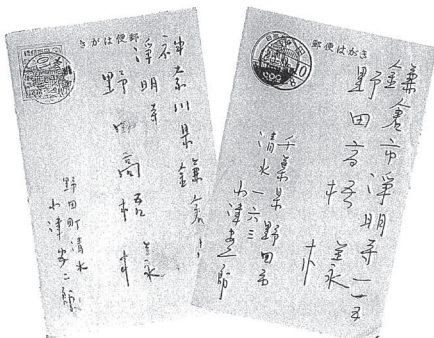 きがは便郵
神奈川県鎌倉市
浄明寺
野田高梧様
野田町清水
小津安二郎
郵便はがき
鎌倉市浄明寺
野田高梧様
千葉県野田市
清水一六三
小津安二郎